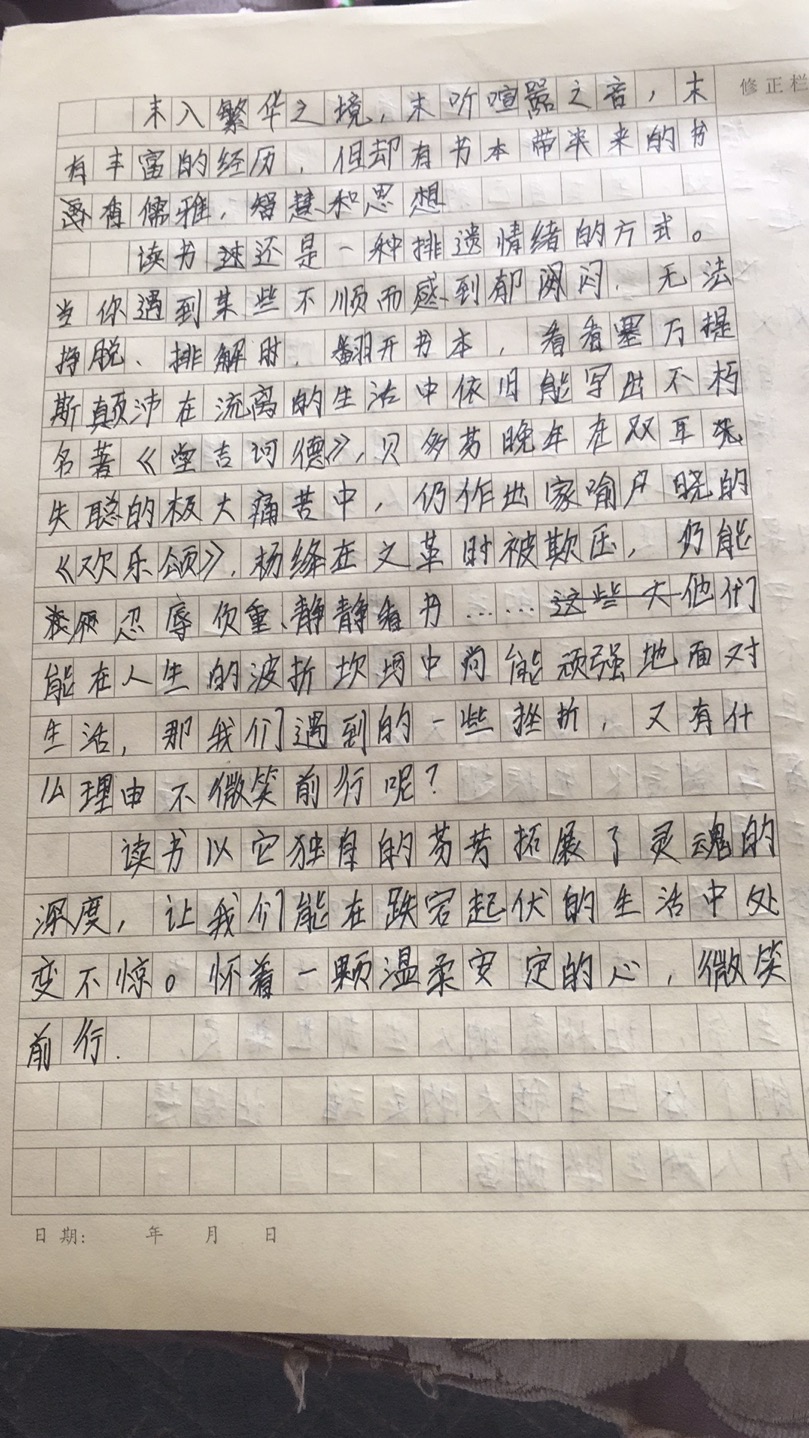 修正栏
未入繁华之境，未听喧嚣之音，未
有丰富的经历，但却有书本带来的书
香儒雅，智慧和思想
读书还是一种排遗情绪的方式。
当你遇到某些不顺而感到郁闷，无法
挣脱、排解时，翻开书本，看看塞万提
斯颠沛在流离的生活中依旧能写出不朽
名著《堂吉诃德》，贝多芬晚年在双耳
失聪的极大痛苦中，仍作出家喻户晓的
《欢乐颂》，杨绛在文革时被欺压，仍能
忍辱负重、静静看书……他们
能在人生的波折坎坷中尚能顽强地面对
生活，那我们遇到的一些挫折，又有什
么理由不微笑前行呢？
读书以它独身的芬芳拓展了灵魂的
深度，让我们能在跌宕起伏的生活中处
变不惊。怀着一颗温柔安定的心，微笑
前行.
日期： 年 月 日